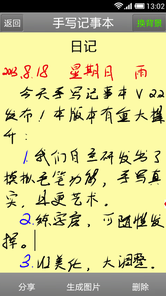 13:02
返回
手写记事本
换背景
日记
2013.8.18 星期日 雨
今天手写记事本V2.2
发布!本版本有重大提
升:
1.我们自主研发出了
模拟毛笔功能,手写真
实,且更艺术。
2.练字宽,可随性发
挥。
3.UI美化,大调整.
分享
生成图片
删除